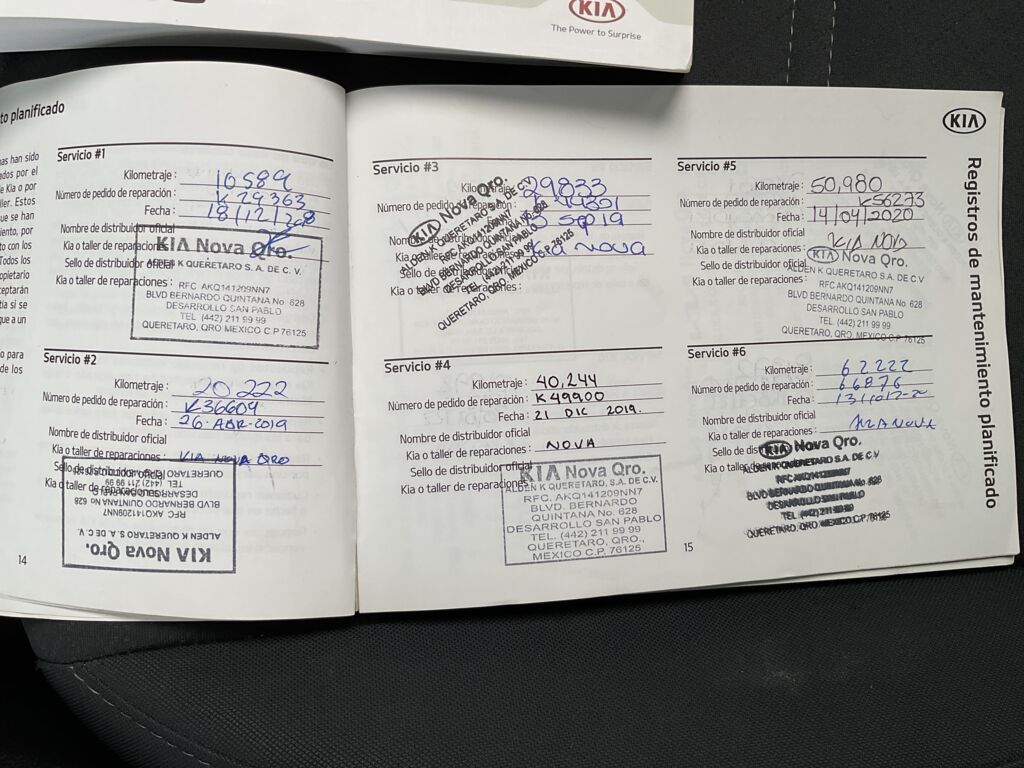 KIA
The Power to Surprise
to planificado
Servicio #1
Kilometraje : 10589
Número de pedido de reparación : K 29363
Fecha : 18/12/
Nombre de distribuidor oficial
Kia o taller de reparaciones :
Sello de distribuidor oficial
Kia o taller de reparaciones :
KIA Nova Qro.
ALDEN K QUERETARO S. A. DE C. V.
RFC AKQ141209NN7
BLVD BERNARDO QUINTANA No 628
DESARROLLO SAN PABLO
TEL (442) 211 99 99
QUERETARO, QRO MEXICO C.P 76125
Servicio #2
Kilometraje : 20,222
Número de pedido de reparación : K36609
Fecha : 26-ABR-2019
Nombre de distribuidor oficial
Kia o taller de reparaciones : KIA NOVA QRO
Sello de distribuidor oficial
Kia o taller de reparaciones :
KIA Nova Qro.
ALDEN K QUERETARO S. A. DE C. V.
RFC AKQ141209NN7
BLVD BERNARDO QUINTANA No 628
DESARROLLO SAN PABLO
TEL (442) 211 99 99
14
Servicio #3
Kilometraje : 29833
Número de pedido de reparación :
Sep 19
Kia o taller de reparaciones : Kia Nova
Kia o taller de reparaciones :
KIA Nova Qro.
ALDEN K QUERETARO S.A. DE C.V
RFC AKQ141209NN7
BLVD BERNARDO QUINTANA No 628
DESARROLLO SAN PABLO
TEL (442) 211 99 99
QUERETARO, QRO MEXICO C.P 76125
Servicio #4
Kilometraje : 40,244
Número de pedido de reparación : K 49900
Fecha : 21 DIC 2019.
Nombre de distribuidor oficial
Kia o taller de reparaciones : NOVA
Sello de distribuidor oficial
Kia o taller de reparaciones :
KIA Nova Qro.
ALDEN K QUERETARO, S.A. DE C.V.
RFC. AKQ141209NN7
BLVD. BERNARDO
QUINTANA No. 628
DESARROLLO SAN PABLO
TEL. (442) 211 99 99
QUERETARO, QRO.,
MEXICO C.P. 76125
Servicio #5
Kilometraje : 50,980
Número de pedido de reparación : K56273
Fecha : 14/04/2020
Nombre de distribuidor oficial
Kia o taller de reparaciones : KIA NOVA
Sello de distribuidor oficial
Kia o taller de reparaciones :
KIA Nova Qro.
ALDEN K QUERETARO S.A. DE C.V
RFC AKQ141209NN7
BLVD BERNARDO QUINTANA No 628
DESARROLLO SAN PABLO
TEL (442) 211 99 99
QUERETARO, QRO MEXICO C.P 76125
Servicio #6
Kilometraje : 62222
Número de pedido de reparación : 66876
Fecha :
Nombre de distribuidor oficial
Kia o taller de reparaciones : KIA NOVA
Kia o taller de
KIA Nova Qro.
ALDEN K QUERETARO S.A. DE C.V
RFC AKQ141209NN7
BLVD BERNARDO QUINTANA No 628
DESARROLLO SAN PABLO
TEL (442) 211 99 99
QUERETARO, QRO MEXICO C.P 76125
15
KIA
Registros de mantenimiento planificado